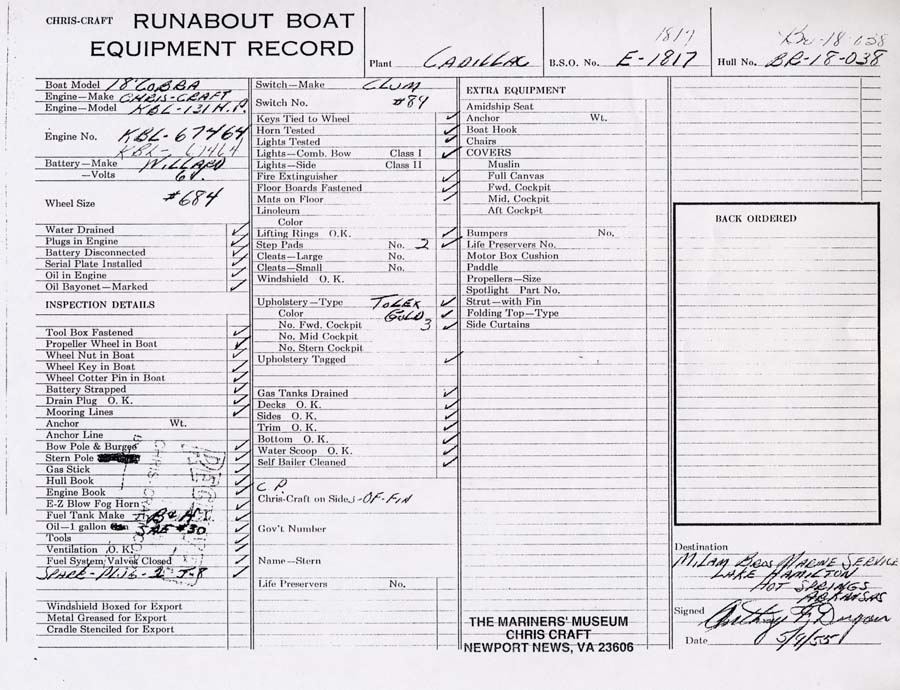 CHRIS-CRAFT RUNABOUT BOAT
EQUIPMENT RECORD
Plant CADILLAC
1817
B.S.O. No. E-1817
BR-18-038
Hull No. BR-18-038
Boat Model 18' COBRA
Engine—Make CHRIS-CRAFT
Engine—Model KBL-131 H.P.
Engine No. KBL-67464
KBL-67464
Battery—Make WILLARD
—Volts 6V.
Wheel Size #684
Water Drained ✓
Plugs in Engine ✓
Battery Disconnected ✓
Serial Plate Installed ✓
Oil in Engine ✓
Oil Bayonet—Marked ✓
INSPECTION DETAILS
Tool Box Fastened ✓
Propeller Wheel in Boat ✓
Wheel Nut in Boat ✓
Wheel Key in Boat ✓
Wheel Cotter Pin in Boat ✓
Battery Strapped ✓
Drain Plug O. K. ✓
Mooring Lines ✓
Anchor Wt.
Anchor Line
Bow Pole & Burgee ✓
Stern Pole ✓
Gas Stick ✓
Hull Book ✓
Engine Book ✓
E-Z Blow Fog Horn ✓
Fuel Tank Make ✓
Oil—1 gallon SAE #30 ✓
Tools ✓
Ventilation O. K. ✓
Fuel System Valves Closed ✓
SPARE-PLUG-2 J-8 ✓
Windshield Boxed for Export
Metal Greased for Export
Cradle Stenciled for Export
Switch—Make CLUM
Switch No. #84
Keys Tied to Wheel ✓
Horn Tested ✓
Lights Tested ✓
Lights—Comb. Bow Class I ✓
Lights—Side Class II
Fire Extinguisher ✓
Floor Boards Fastened ✓
Mats on Floor ✓
Linoleum
Color
Lifting Rings O.K. ✓
Step Pads No. 2 ✓
Cleats—Large No.
Cleats—Small No.
Windshield O. K.
Upholstery—Type TOLEX ✓
Color GOLD ✓
No. Fwd. Cockpit 3 ✓
No. Mid Cockpit
No. Stern Cockpit
Upholstery Tagged ✓
Gas Tanks Drained ✓
Decks O. K. ✓
Sides O. K. ✓
Trim O. K. ✓
Bottom O. K. ✓
Water Scoop O. K. ✓
Self Bailer Cleaned ✓
C.P.
Chris-Craft on Sides-OF-FIN
Gov't Number
Name—Stern
Life Preservers No.
EXTRA EQUIPMENT
Amidship Seat
Anchor Wt.
Boat Hook
Chairs
COVERS
Muslin
Full Canvas
Fwd. Cockpit
Mid. Cockpit
Aft Cockpit
Bumpers No.
Life Preservers No.
Motor Box Cushion
Paddle
Propellers—Size
Spotlight Part No.
Strut—with Fin
Folding Top—Type
Side Curtains
THE MARINERS' MUSEUM
CHRIS CRAFT
NEWPORT NEWS, VA 23606
BACK ORDERED
Destination
MILAM BROS MARINE SERVICE
LAKE HAMILTON
HOT SPRINGS
ARKANSAS
Signed Anthony F.
Date 5/9/55